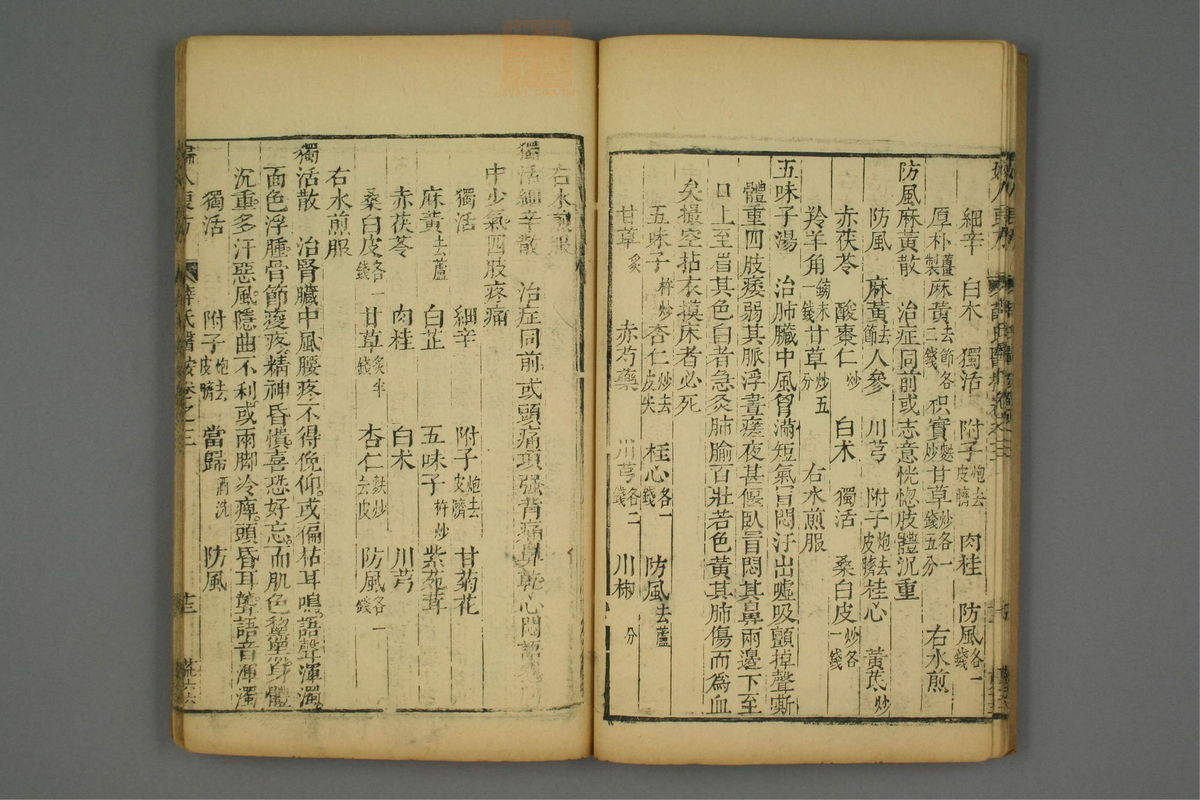 細辛 白木 獨活 附子炮去皮臍 肉桂 防風各一錢
厚朴薑製 麻黄去節各二錢 枳實麩炒 甘草炒各一錢五分 右水煎
防風麻黄散 治症同前或志意恍惚肢體沉重
防風 麻黄去節 人參 川芎 附子炮去皮臍 桂心 黄芪炒
赤茯苓 酸棗仁炒 白术 獨活 桑白皮炒各一錢
羚羊角鎊末一錢 甘草炒五分 右水煎服
五味子湯 治肺臟中風胷滿短氣冒悶汗出嘘吸顫掉聲嘶
體重四肢痿弱其脈浮晝瘥夜甚偃臥冒悶其鼻兩邊下至
口上至眉其色白者急灸肺腧百壯若色黄其肺傷而為血
矣撮空拈衣摸床者必死
五味子杵炒 杏仁炒去皮尖 桂心各一錢 防風去蘆
甘草炙 赤芍藥 川芎各二錢 川椒 分
右水煎服
獨活細辛散 治症同前或頭痛項强背痛鼻乾心悶語
中少氣四肢疼痛
獨活 細辛 附子炮去皮臍 甘菊花
麻黄去蘆 白芷 五味子杵炒 紫菀茸
赤茯苓 肉桂 白术 川芎
桑白皮各一錢 甘草炙半錢 杏仁麩炒去皮 防風各一錢
右水煎服
獨活散 治腎臟中風腰疼不得俛仰或偏枯耳鳴語聲渾濁
面色浮腫骨節痠疼精神昏憒喜恐好忘而肌色黧黑身體
沉重多汗惡風隱曲不利或兩脚冷痺頭昏耳聾語音渾濁
獨活 附子炮去皮臍 當歸酒洗 防風
婦人良方 薛氏醫按卷之三